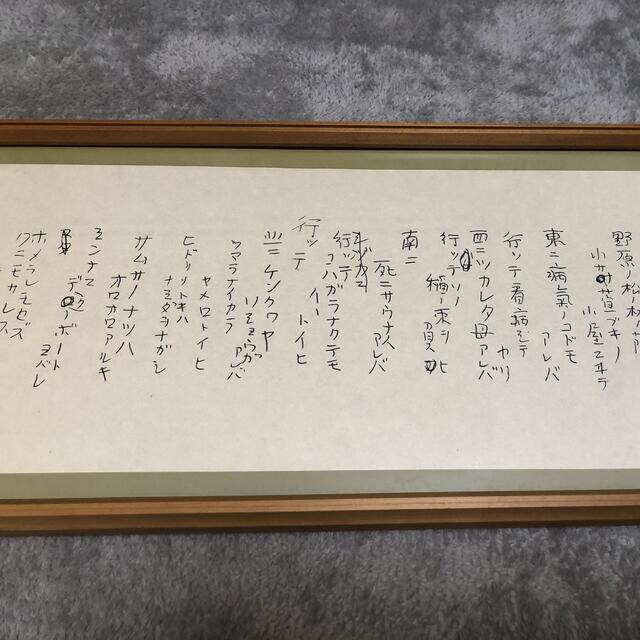 野原ノ松ノ林ノ
小サナ萓ブキノ
小屋ニヰテ
東ニ病気ノコドモ
アレバ
行ッテ看病シテ
ヤリ
西ニツカレタ母アレバ
行ッテソノ
稲ノ束ヲ
南ニ
死ニサウナ人
アレバ
行ッテ
コハガラナクテモ
イヽトイヒ
行ッテ
北ニケンクヮヤ
ソショウガ
アレバ
ツマラナイカラ
ヤメロトイヒ
ヒドリノトキハ
ナミダヲナガシ
サムサノナツハ
オロオロアルキ
ミンナニ
デクノボート
ヨバレ
ホメラレモセズ
クニモサレズ